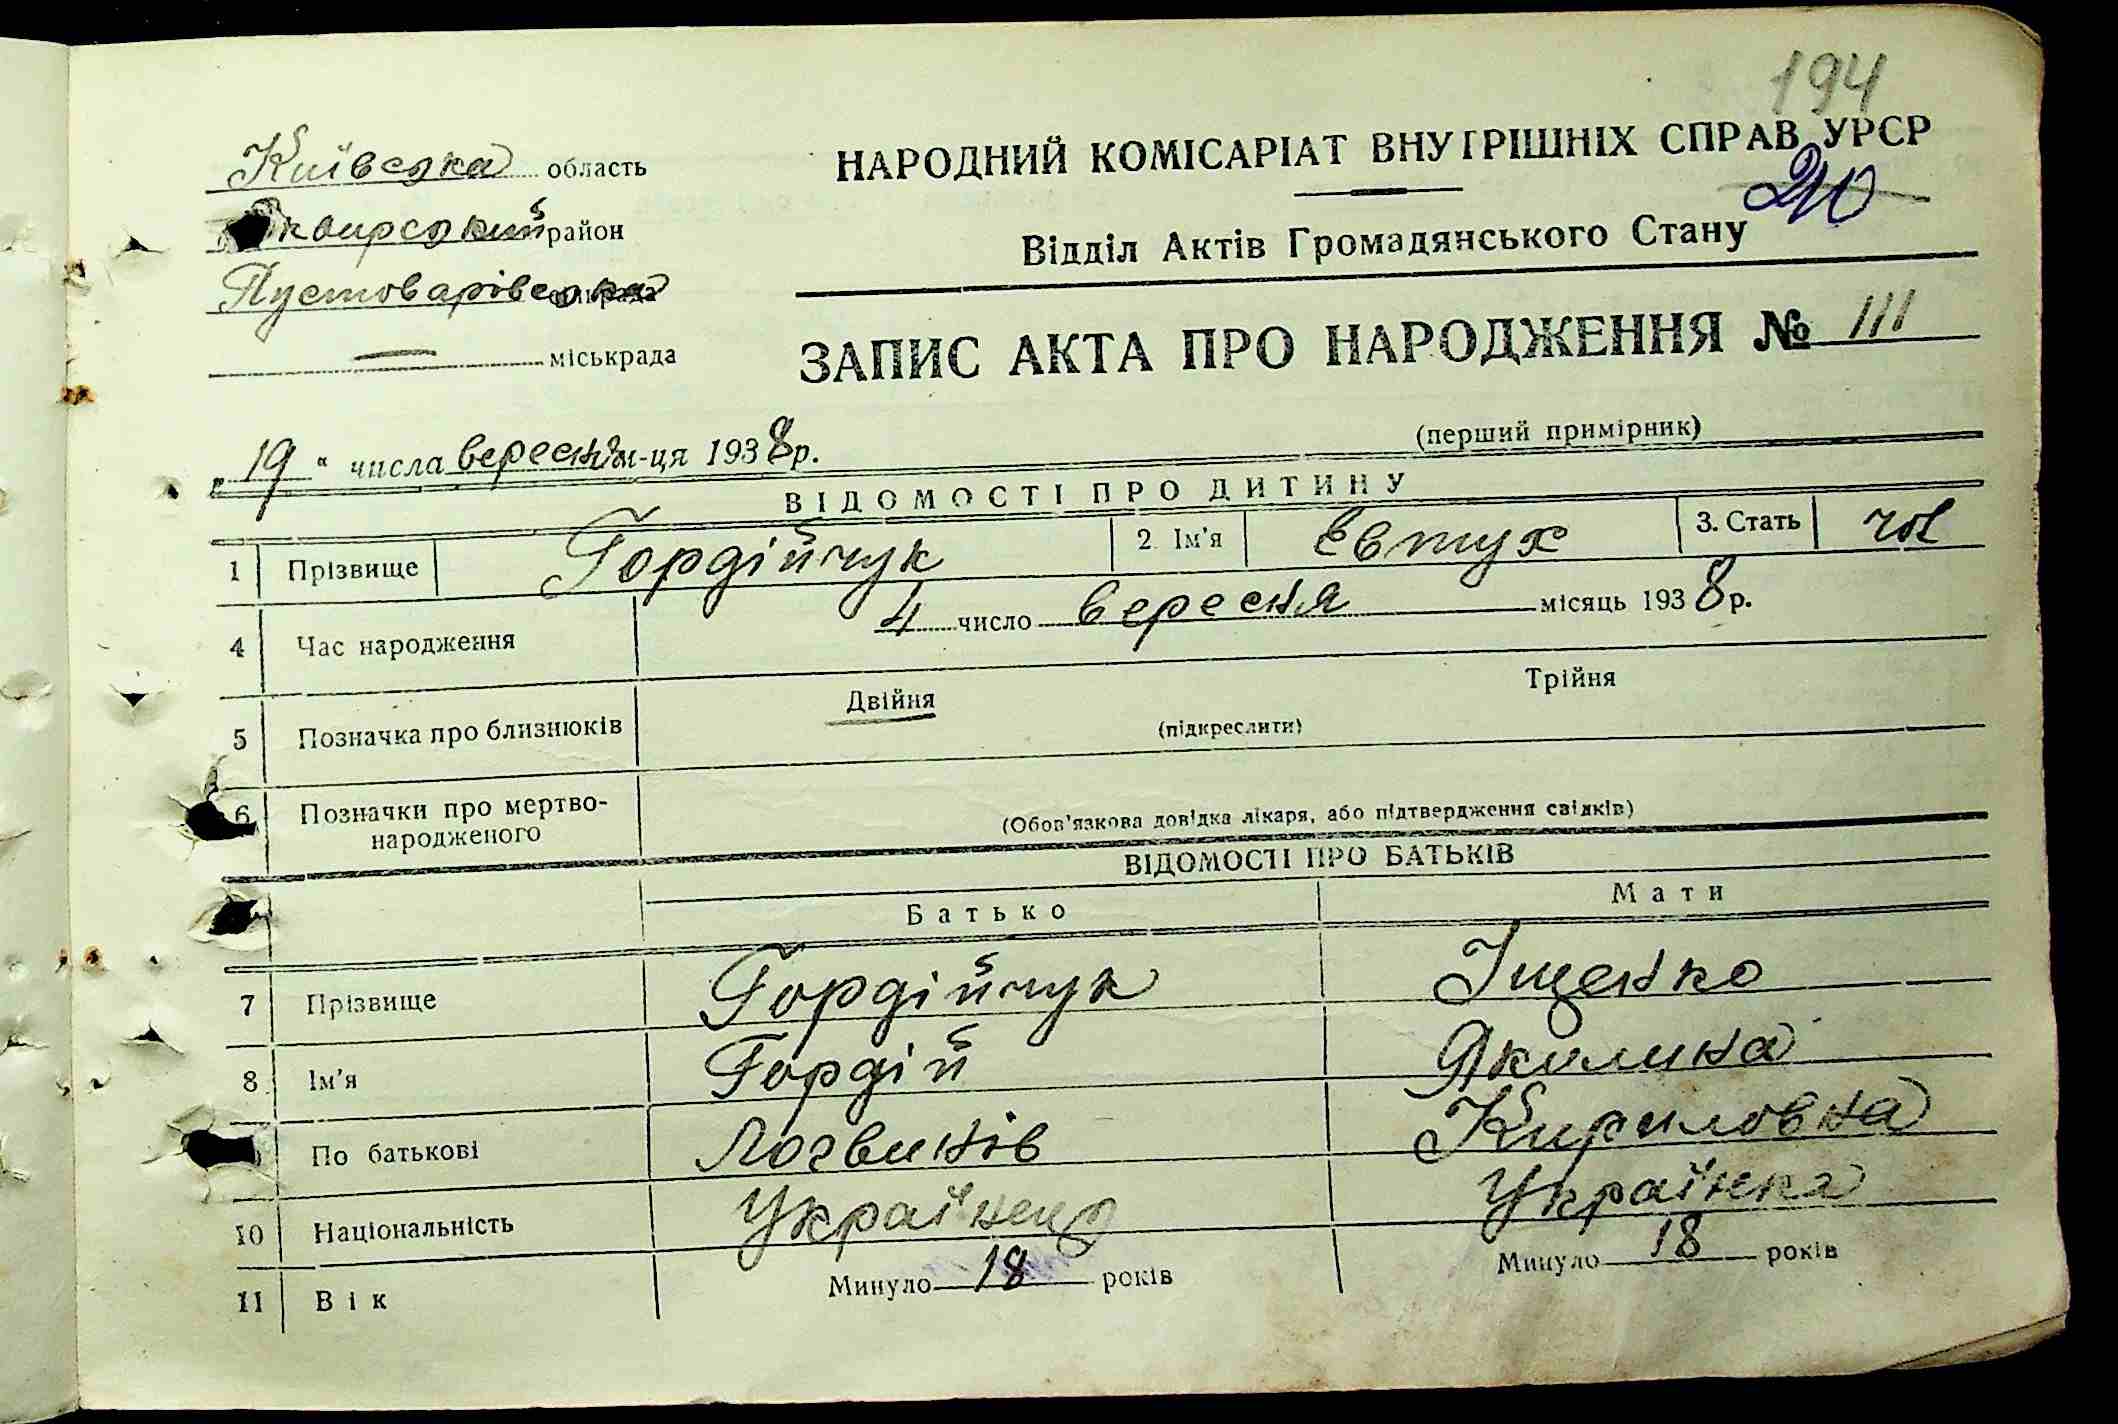 194
Київська область
НАРОДНИЙ КОМІСАРІАТ ВНУТРІШНІХ СПРАВ УРСР
Сквирський район
210
Відділ Актів Громадянського Стану
Пустоварівська сільрада
міськрада
ЗАПИС АКТА ПРО НАРОДЖЕННЯ № 111
(перший примірник)
„19“ числа вересня м-ця 1938 р.
ВІДОМОСТІ ПРО ДИТИНУ
1 Прізвище Гордійчук 2. Ім'я Евтух 3. Стать чол
4 Час народження 4 число вересня місяць 1938 р.
5 Позначка про близнюків Двійня (підкреслити) Трійня
6 Позначки про мертво-
народженого (Обов'язкова довідка лікаря, або підтвердження свідків)
ВІДОМОСТІ ПРО БАТЬКІВ
Батько Мати
7 Прізвище Гордійчук Іщенко
8 Ім'я Гордій Якилина
По батькові Логвинів Кириловна
10 Національність Українец Українка
11 Вік Минуло 18 років Минуло 18 років